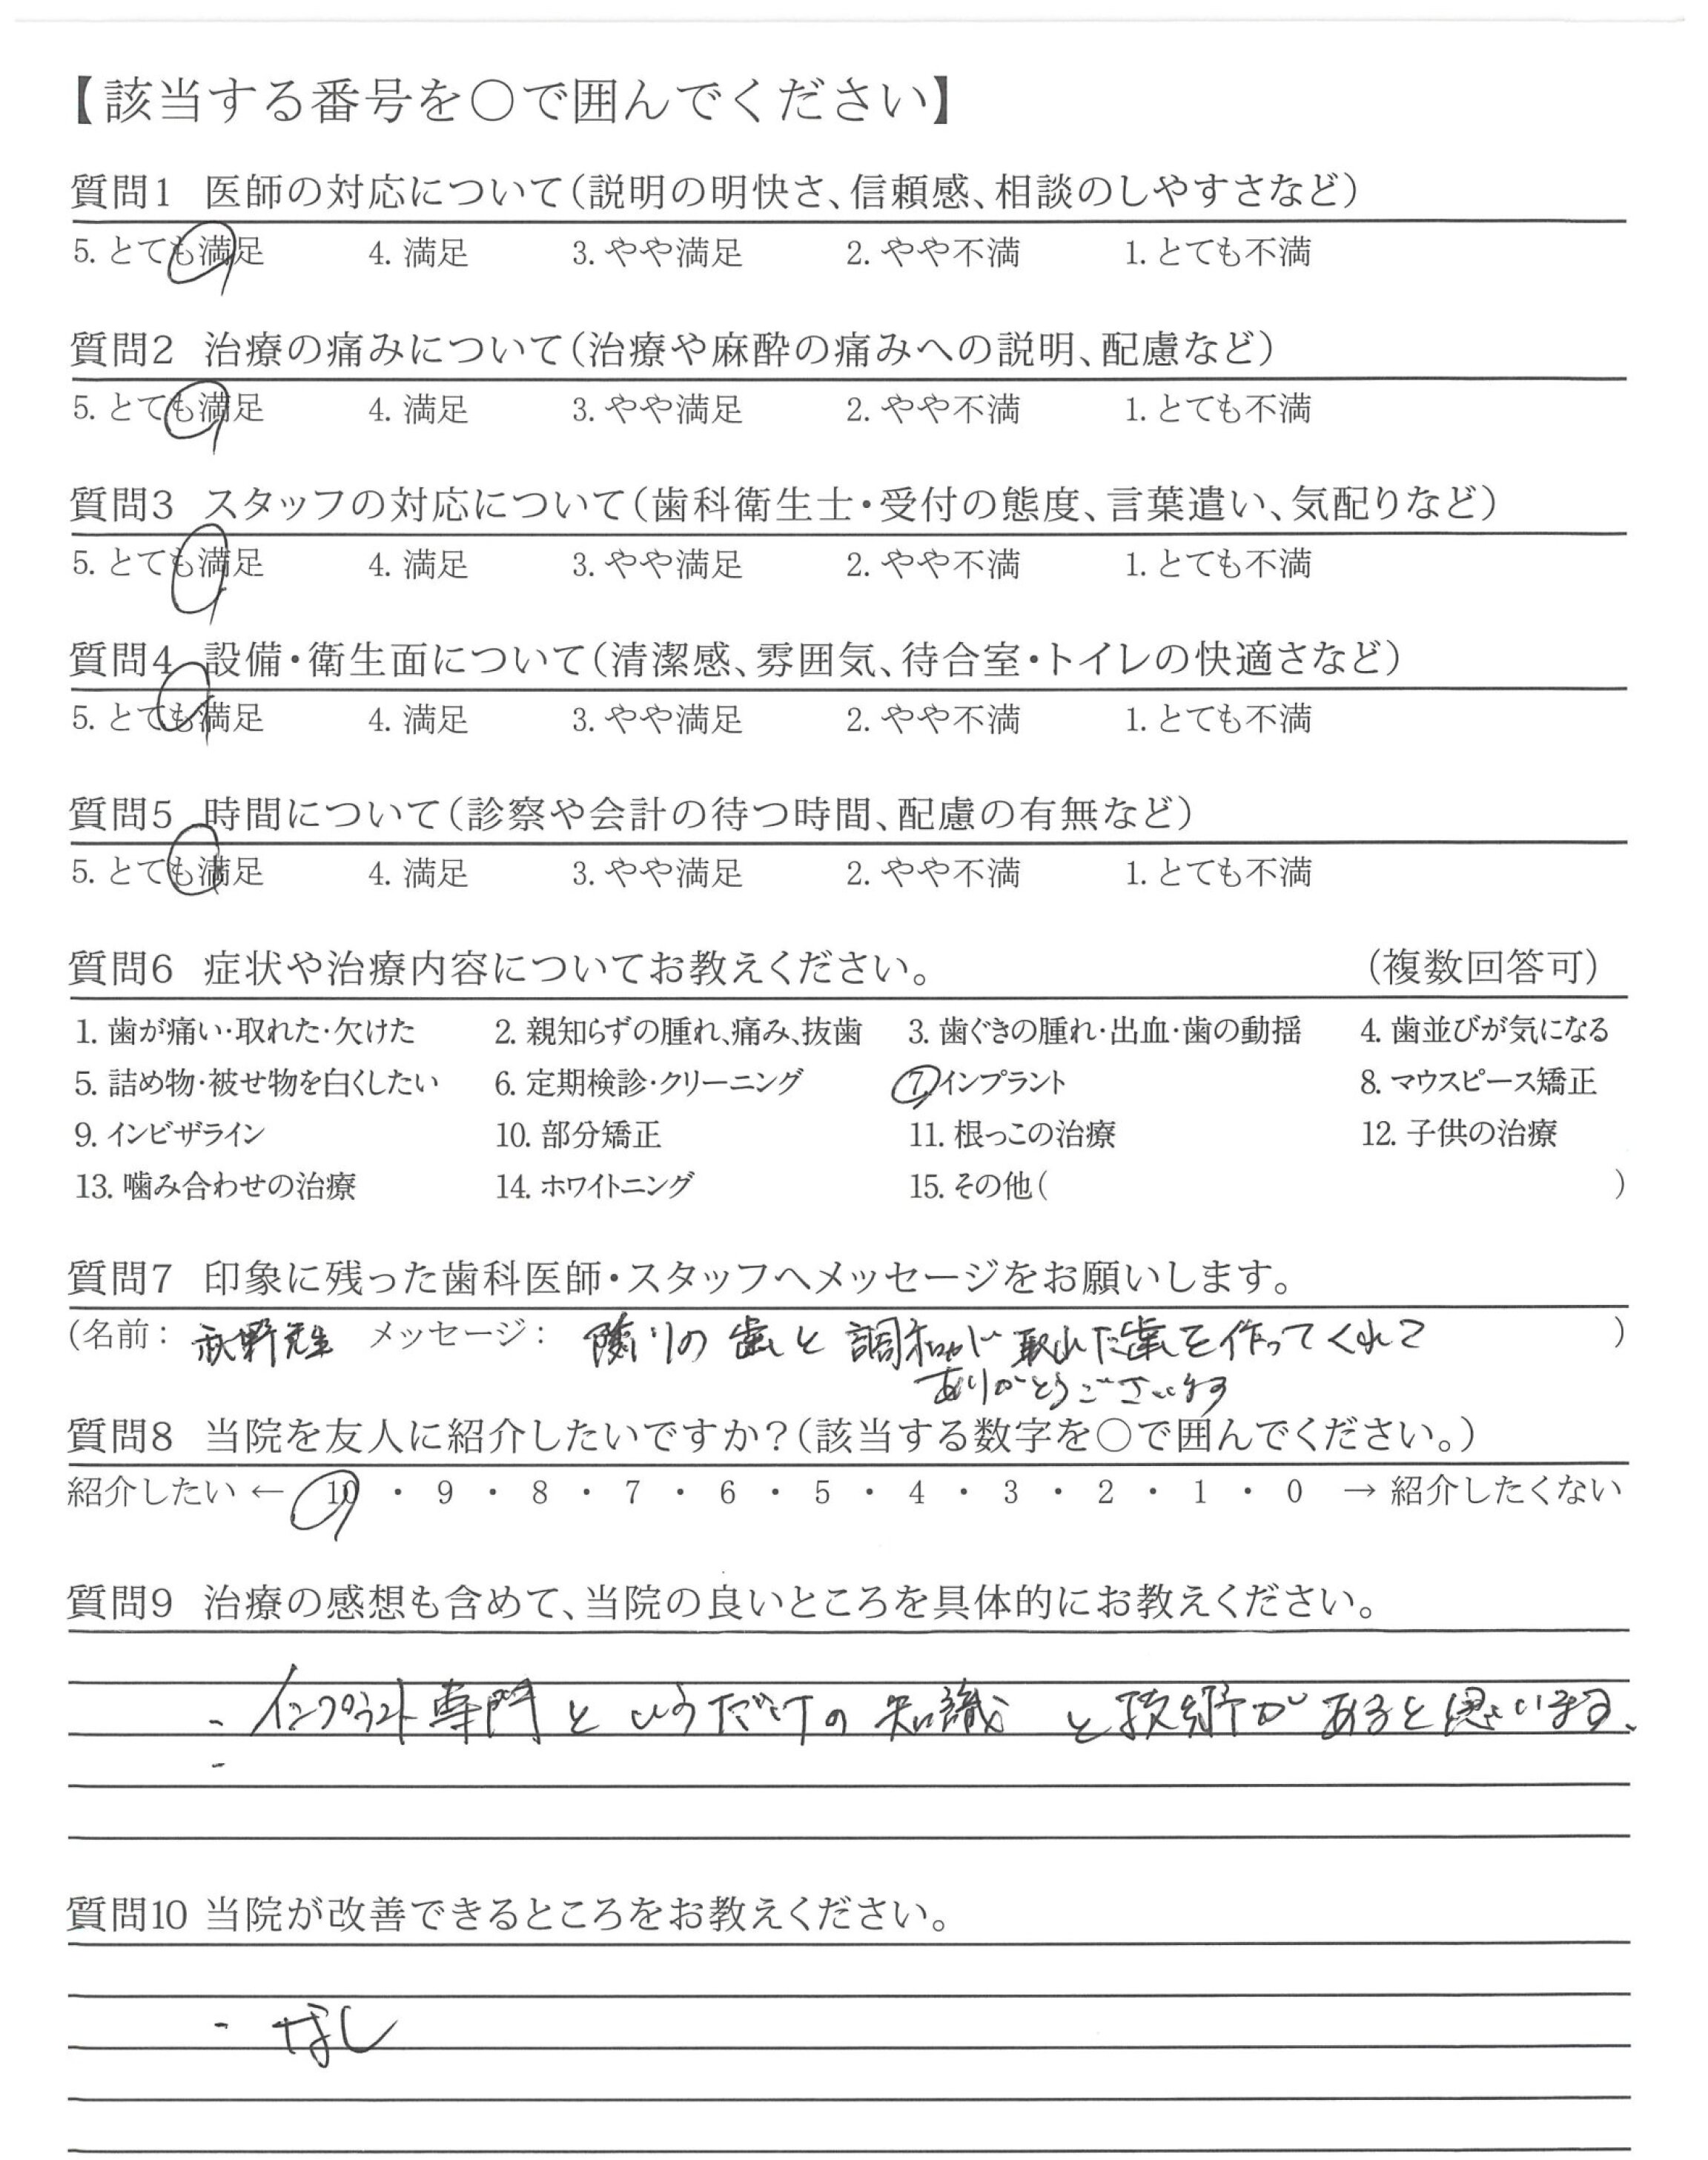 【該当する番号を〇で囲んでください】
質問1 医師の対応について(説明の明快さ、信頼感、相談のしやすさなど)
5. とても満足 4. 満足 3. やや満足 2. やや不満 1. とても不満
質問2 治療の痛みについて(治療や麻酔の痛みへの説明、配慮など)
5. とても満足 4. 満足 3. やや満足 2. やや不満 1. とても不満
質問3 スタッフの対応について(歯科衛生士・受付の態度、言葉遣い、気配りなど)
5. とても満足 4. 満足 3. やや満足 2. やや不満 1. とても不満
質問4 設備・衛生面について(清潔感、雰囲気、待合室・トイレの快適さなど)
5. とても満足 4. 満足 3. やや満足 2. やや不満 1. とても不満
質問5 時間について(診察や会計の待つ時間、配慮の有無など)
5. とても満足 4. 満足 3. やや満足 2. やや不満 1. とても不満
質問6 症状や治療内容についてお教えください。 (複数回答可)
1. 歯が痛い・取れた・欠けた 2. 親知らずの腫れ、痛み、抜歯 3. 歯ぐきの腫れ・出血・歯の動揺 4. 歯並びが気になる
5. 詰め物・被せ物を白くしたい 6. 定期検診・クリーニング 7. インプラント 8. マウスピース矯正
9. インビザライン 10. 部分矯正 11. 根っこの治療 12. 子供の治療
13. 噛み合わせの治療 14. ホワイトニング 15. その他( )
質問7 印象に残った歯科医師・スタッフへメッセージをお願いします。
(名前: 先生 メッセージ: 隣りの歯と調和が取れた歯を作ってくれて )
ありがとうございます
質問8 当院を友人に紹介したいですか?(該当する数字を〇で囲んでください。)
紹介したい ← 10 ・ 9 ・ 8 ・ 7 ・ 6 ・ 5 ・ 4 ・ 3 ・ 2 ・ 1 ・ 0 → 紹介したくない
質問9 治療の感想も含めて、当院の良いところを具体的にお教えください。
- インプラント専門というだけの知識と技術があると思います。
-
質問10 当院が改善できるところをお教えください。
- なし